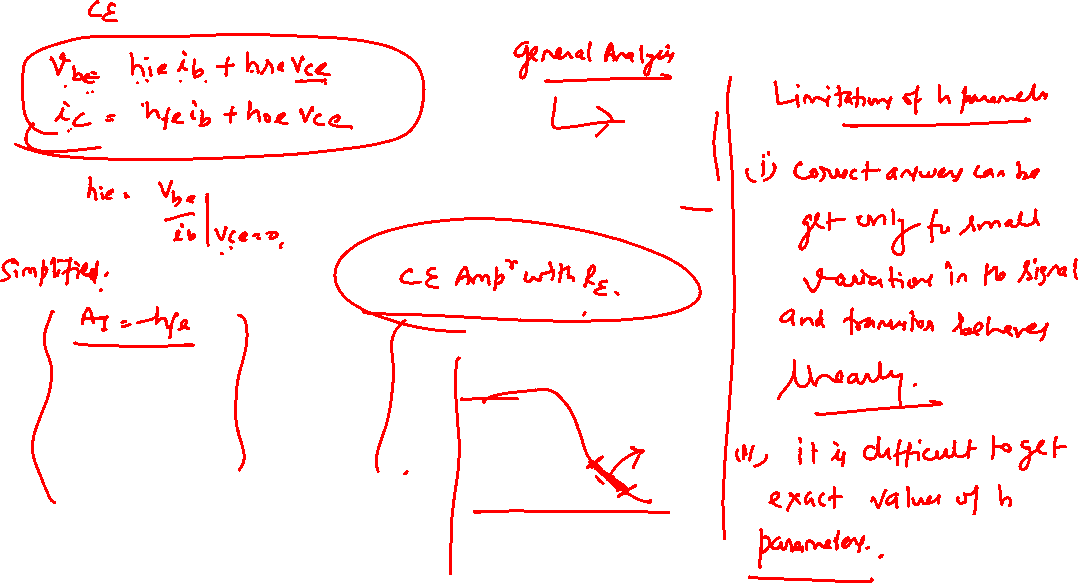 CE
Vbe = hie ib + hre Vce
ic = hfe ib + hoe Vce
hie = Vbe / ib | Vce=0.
Simplified.
AI = -hfe
General Analysis
CE Ampr with RE.
Limitations of h parameters
(i) Correct answers can be
get only for small
variations in the signal
and transistor behaves
linearly.
(ii) it is difficult to get
exact values of h
parameters.